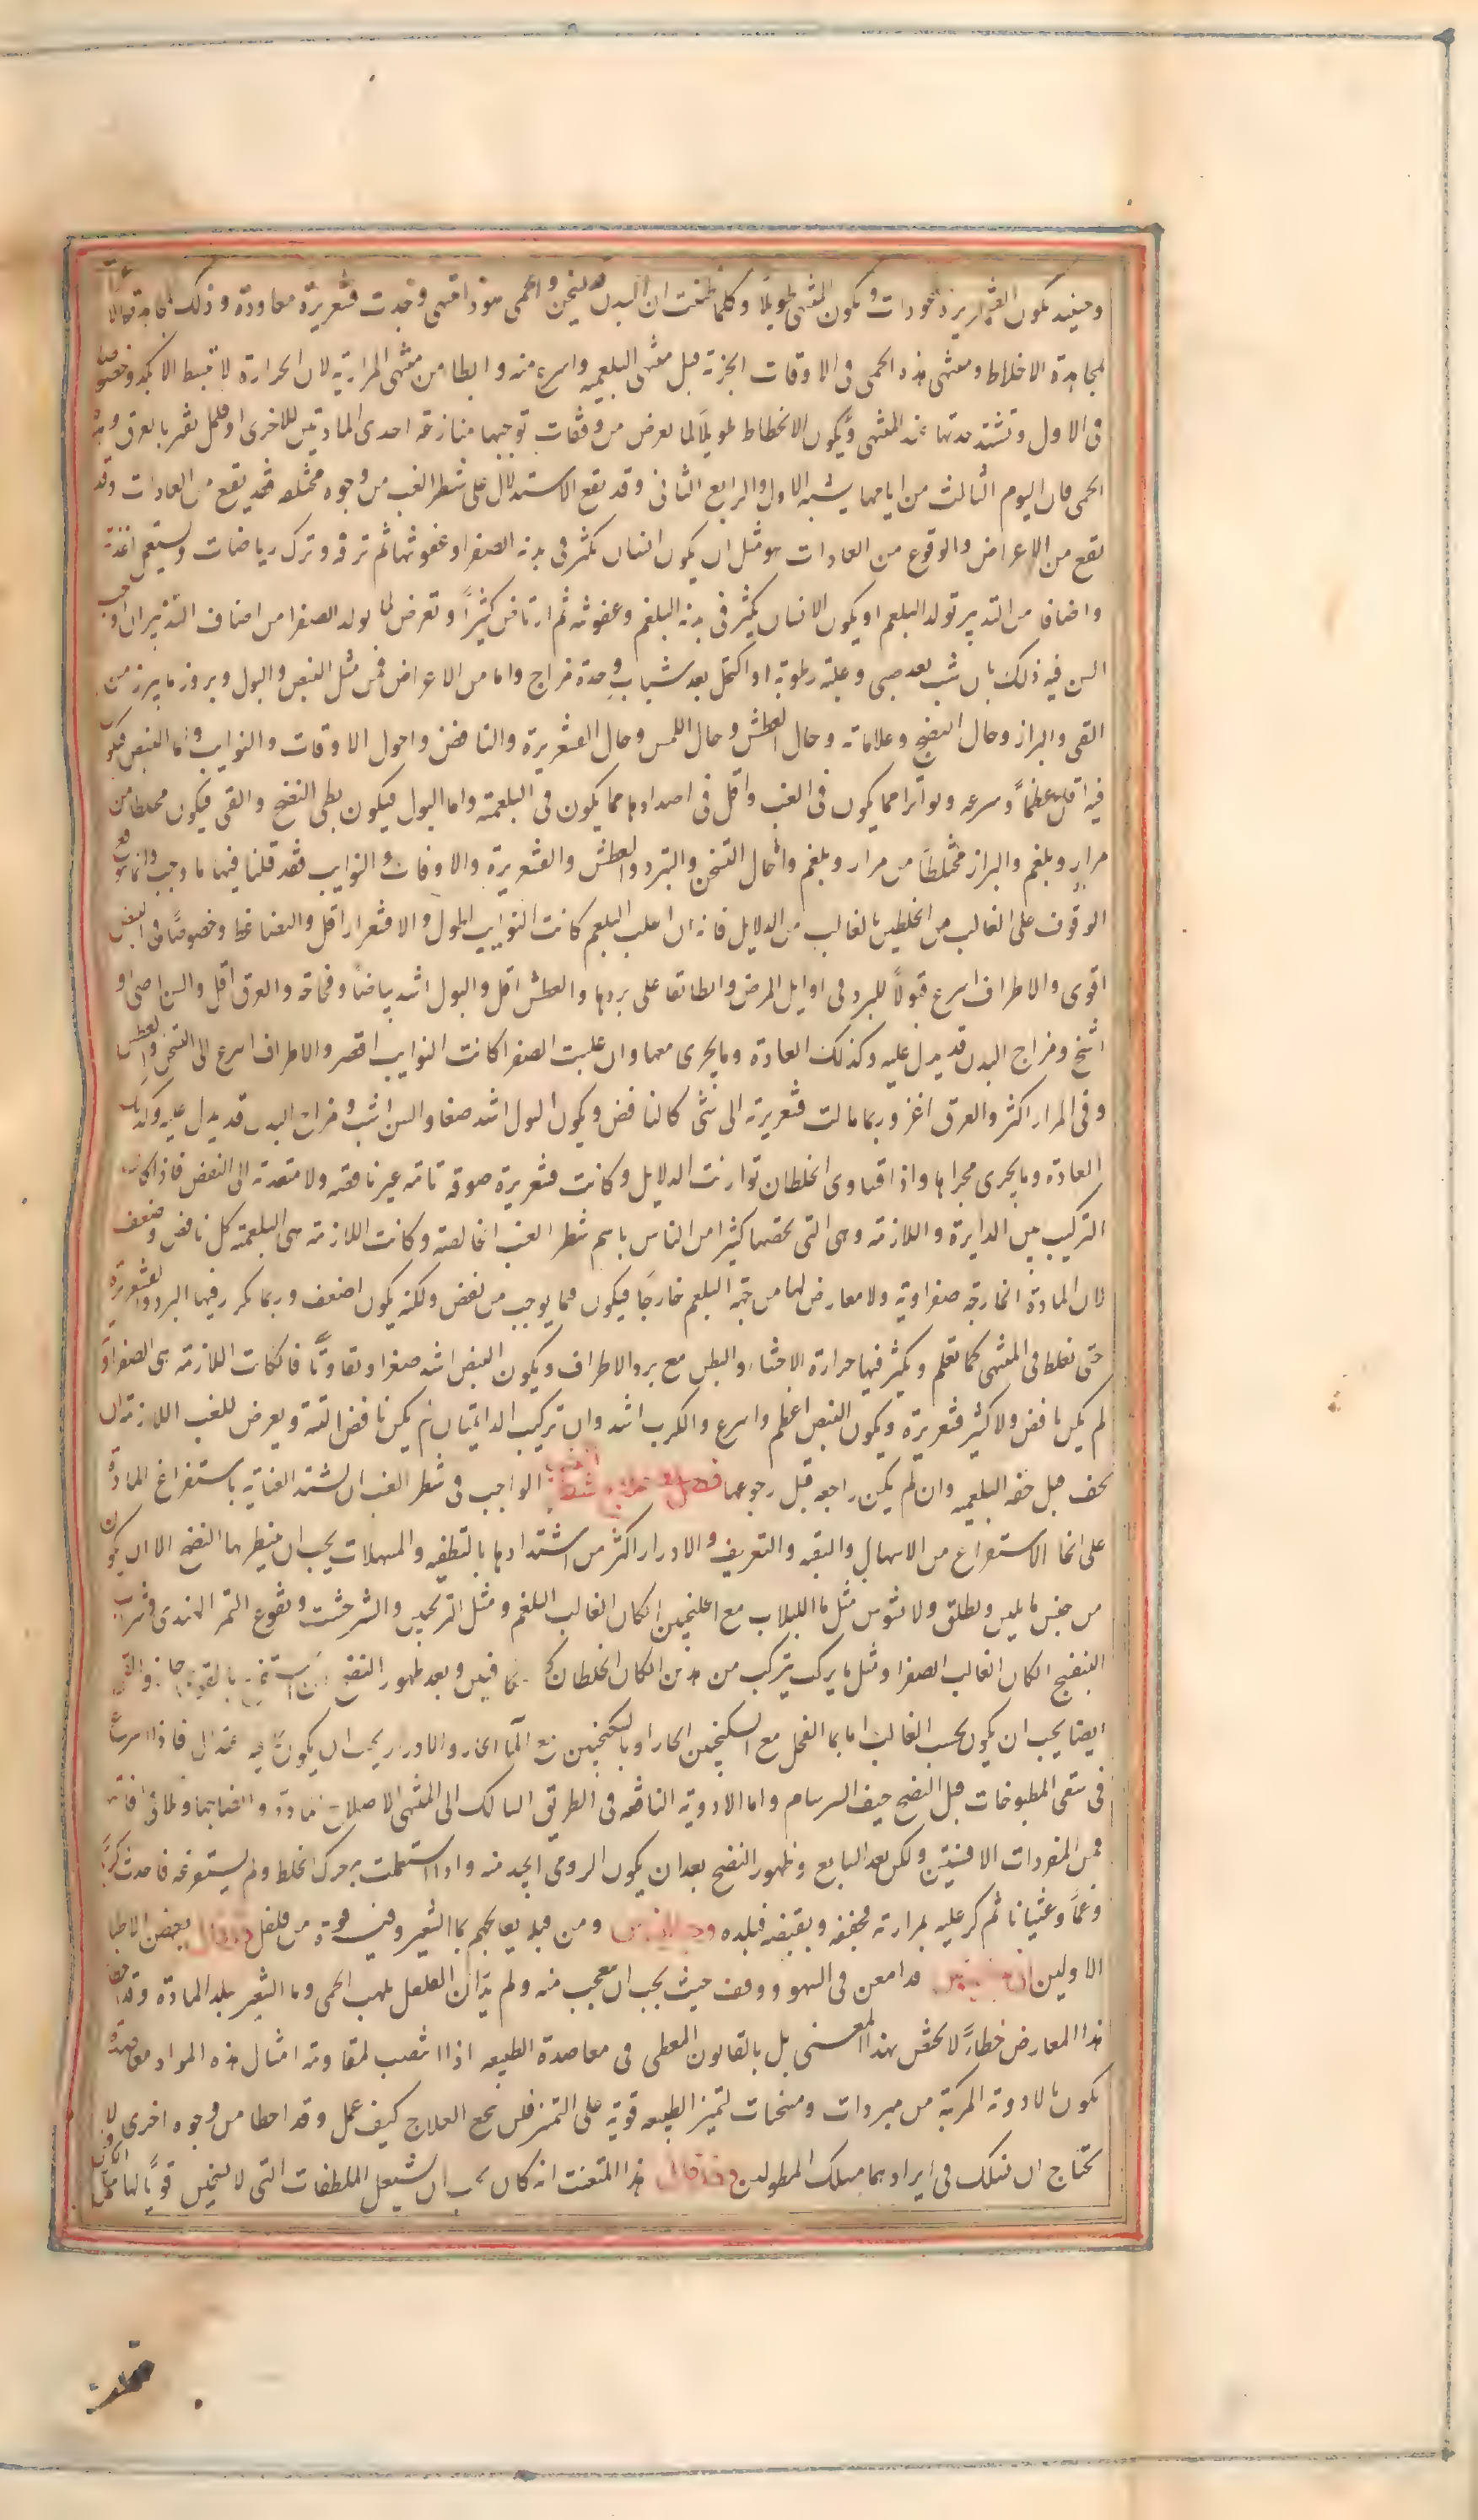 وحينئذ يكون القشعريرة ذو عودات ويكون المنتهى طويلاً وكلما ظننت ان البدن قد تسخن والحمى هوذا تنتهى وجدت قشعريرة معاودة وذلك
لمجاهدة الاخلاط ومنتهى هذه الحمى فى الاوقات الجزئة قبل منتهى البلغمية واسرع منه وابطا من منتهى المرارية لان الحرارة لا تنبسط الا بكد وخصوصا
فى الاول وتشتد حدتها عند المنتهى ويكون الانحطاط طويلاً لما يعرض من وقفات توجبها منازعة احدى المادتين للاخرى او قلما تقر بالعرق
الحمى فان اليوم الثالث من ايامها يشبه الاول والرابع الثانى وقد يقع الاستدلال على شطر الغب من وجوه مختلفة فقد يقع من العادات وقد
يقع من الاعراض والوقوع من العادات هو مثل ان يكون انسان يكثر فى بدنه الصفرا وعفونتها ثم ترفه وترك رياضات واستعمل اغذية
واضافا من التدبير تولد البلغم او يكون الانسان يكثر فى بدنه البلغم وعفونته ثم ارتاض كثيراً وتعرض لما يولد الصفرا من اصناف التدبير او اوجب
السن فيه ذلك بان شب بعد صبى وغلبة رطوبة او اكتهل بعد شباب وحدة مزاج واما من الاعراض فمن مثل النبض والبول وبروز ما يبرز من
القى والبراز وحال النضج وعلاماته وحال العطش وحال اللمس وحال القشعريرة والنافض واحول الاوقات والنوايب واما النبض فيكون
فيه اقل عظماً وسرعة وتواترا مما يكون فى الغب واقل فى اضدادها مما يكون فى البلغمية واما البول فيكون بطى النضج والقى فيكون مختلطا من
مرار وبلغم والبراز مختلطاً من مرار وبلغم واما حال التسخن والتبرد والعطش والقشعريرة والاوقات والنوايب فقد قلنا فيها ما وجب وانما يقع
الوقوف على الغالب من الخلطين بالغالب من الدلايل فانه ان غلب البلغم كانت النوايب اطول والاقشعرار اقل والضاغط وخصوصاً فى النبض
اقوى والاطراف اسرع قبولاً للبرد فى اوايل المرض وابطا بقا على بردها والعطش اقل والبول اشد بياضاً وفجاجة والعرق اقل والسن اصى او
اشيخ ومزاج البدن قد يدل عليه وكذلك العادة وما يجرى معها وان غلبت الصفرا كانت النوايب اقصر والاطراف اسرع الى التسخن والعطش
وقى المرار اكثر والعرق اغزر وربما مالت قشعريرة الى شى كالنافض ويكون البول اشد صبغا والسن اشب ومزاج البدن قد يدل عليه وكذلك
العادة وما يجرى مجراها واذا تساوى الخلطان توازنت الدلايل وكانت قشعريرة صرفة تامة غير ناقصة ولا متعدية الى النفض فاذا كان
التركيب بين الدايرة واللازمة وهى التى يخصها كثيرا من الناس باسم شطر الغب الخالصة وكانت اللازمة هى البلغمية كان نافض وضعف
لان المادة الخارجة صفراوية ولا معارض لها من جهة البلغم خارجاً فيكون مما يوجب من نفض ولكنه يكون اضعف وربما تكرر فيها البرد والقشعريرة
حتى تغلط فى المنتهى كما تعلم ويكثر فيها حرارة الاحشاء والبطن مع برد الاطراف ويكون النبض اشد صغرا وتفاوتاً فان كانت اللازمة هى الصفراوية
لم يكن نافض ولا كثير قشعريرة ويكون النبض اعظم واسرع والكرب اشد وان تركبت الدائمتان لم يكن نافض البتة ويعرض للغب اللازمة ان
تخف قبل خفة البلغمية وان لم يكن راجعة قبل رجوعها فصل فى علاج شطر الغب الواجب فى شطر الغب ان تشتد العناية باستفراغ المادة
على انحا الاستفراغ من الاسهال والتقية والتعريق والادرار اكثر من اشتدادها بالتطفية والمسهلات يجب ان ينتظر بها النضج الا ان يكون
من جنس ما يلين ويطلق ولا يشوش مثل ما اللبلاب مع الجلنجبين ان كان الغالب البلغم ومثل الترنجبين والشيرخشت ونقوع التمر الهندى وشراب
البنفسج ان كان الغالب الصفرا ومثل ما يركب يتركب من هذين ان كان الخلطان كالمتكافيين وبعد ظهور النضج فاستفرغ
ايضا يجب ان يكون بحسب الغالب اما بما الفجل مع السكنجبين الحار او بالسكنجبين مع الما الحار والادرار يجب ان يكون فيه اعتدال
فى سقى المطبوخات قبل النضج خيف السرسام واما الادوية النافعة فى الطريق السالك الى المنتهى لاصلاح المادة وانضاجها وتلافى
فمن المفردات الافسنتين ولكن بعد السابع وظهور النضج بعد ان يكون الرومى الجيد منه واذا استعملت به حرك الخلط ولم يستفرغه فاحدث كرباً
وغماً وغثيانا ثم كر عليه بمرارته فجففه وبقبضه فبلده وجالينوس ومن قبله يعالجهم بما الشعير وفيه قوة من فلفل وقد قال بعض الاطبا
الاولين ان جالينوس قد امعن فى السهو ووقف حيث يجب ان يتعجب منه ولم يدر ان الفلفل يلهب الحمى وما الشعير يبلد المادة وقد اخطا
هذا المعارض خطاءً لا يختص بهذا المعنى بل بالقانون المعطى فى معاضدة الطبيعة اذا انتصب لمقاومة امثال هذه المواد معاضدة
يكون بالادوية المركبة من مبردات ومسخنات لتميز الطبيعة قوية على التمييز فلن ينجع العلاج كيف عمل وقد اخطا من وجوه اخرى لا
تحتاج ان نسلك فى ايرادها مسلك المطولين وقد قال هذا المتعنت انه كان يجب ان يستعمل الملطفات التى لا تسخين قوياً لها